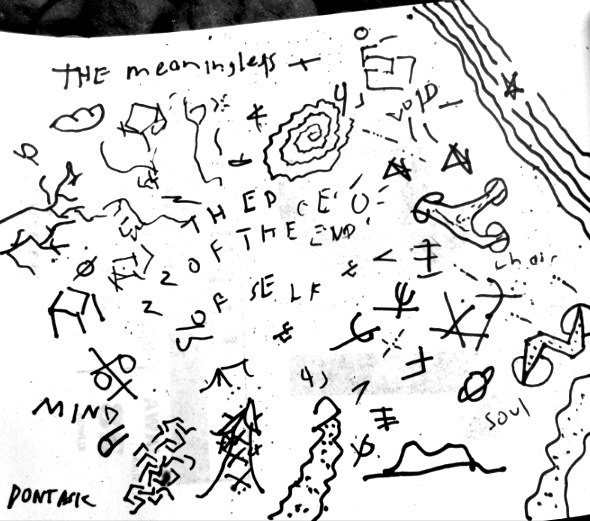 THE meaningless
VOID
THE
OF THE END
OF SELF
chair
45
MIND
soul
DONT ASK